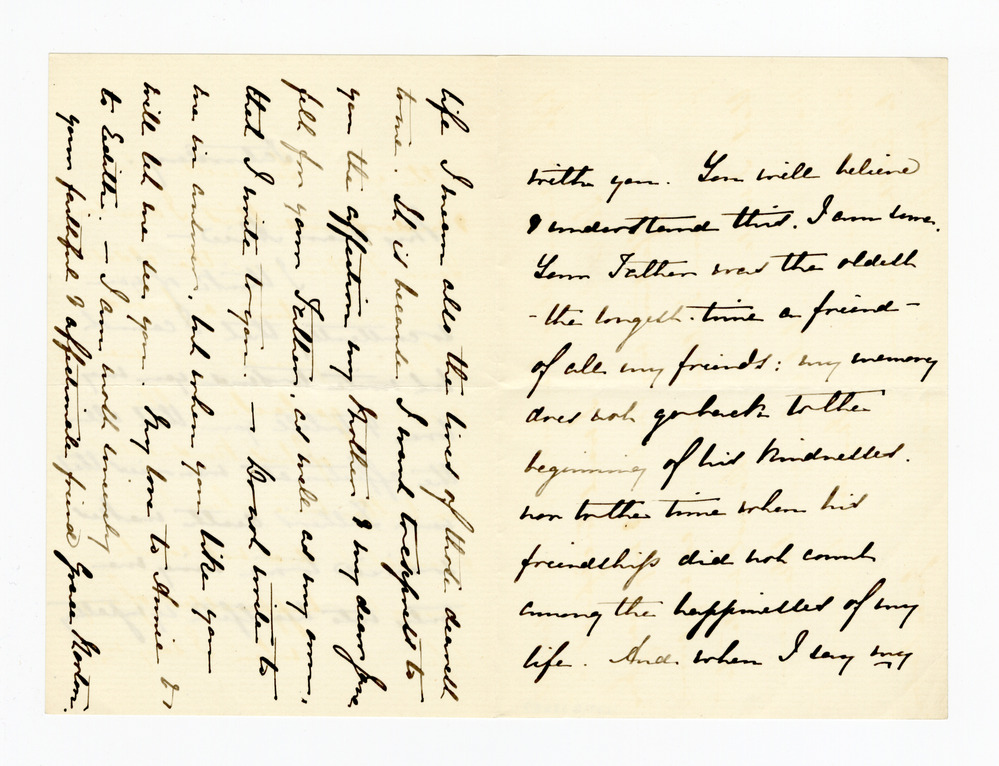 with you. You will believe
I understand this. I am sure.
Your Father was the oldest
- the longest-time a friend -
of all my friends: my memory
does not go back to the
beginning of his kindnesses.
nor to the time when his
friendship did not count
among the happinesses of my
life. And when I say my
life I mean also the lives of those dearest
to me. It is because I want to express to
you the affection my Mother & my dear Jane
felt for your Father, as well as my own,
that I write to you. — Do not write to
me in answer, but when you like you
will let me see you. My love to Annie &
to Edith. — I am most sincerely
your faithful & affectionate friend Grace Norton.